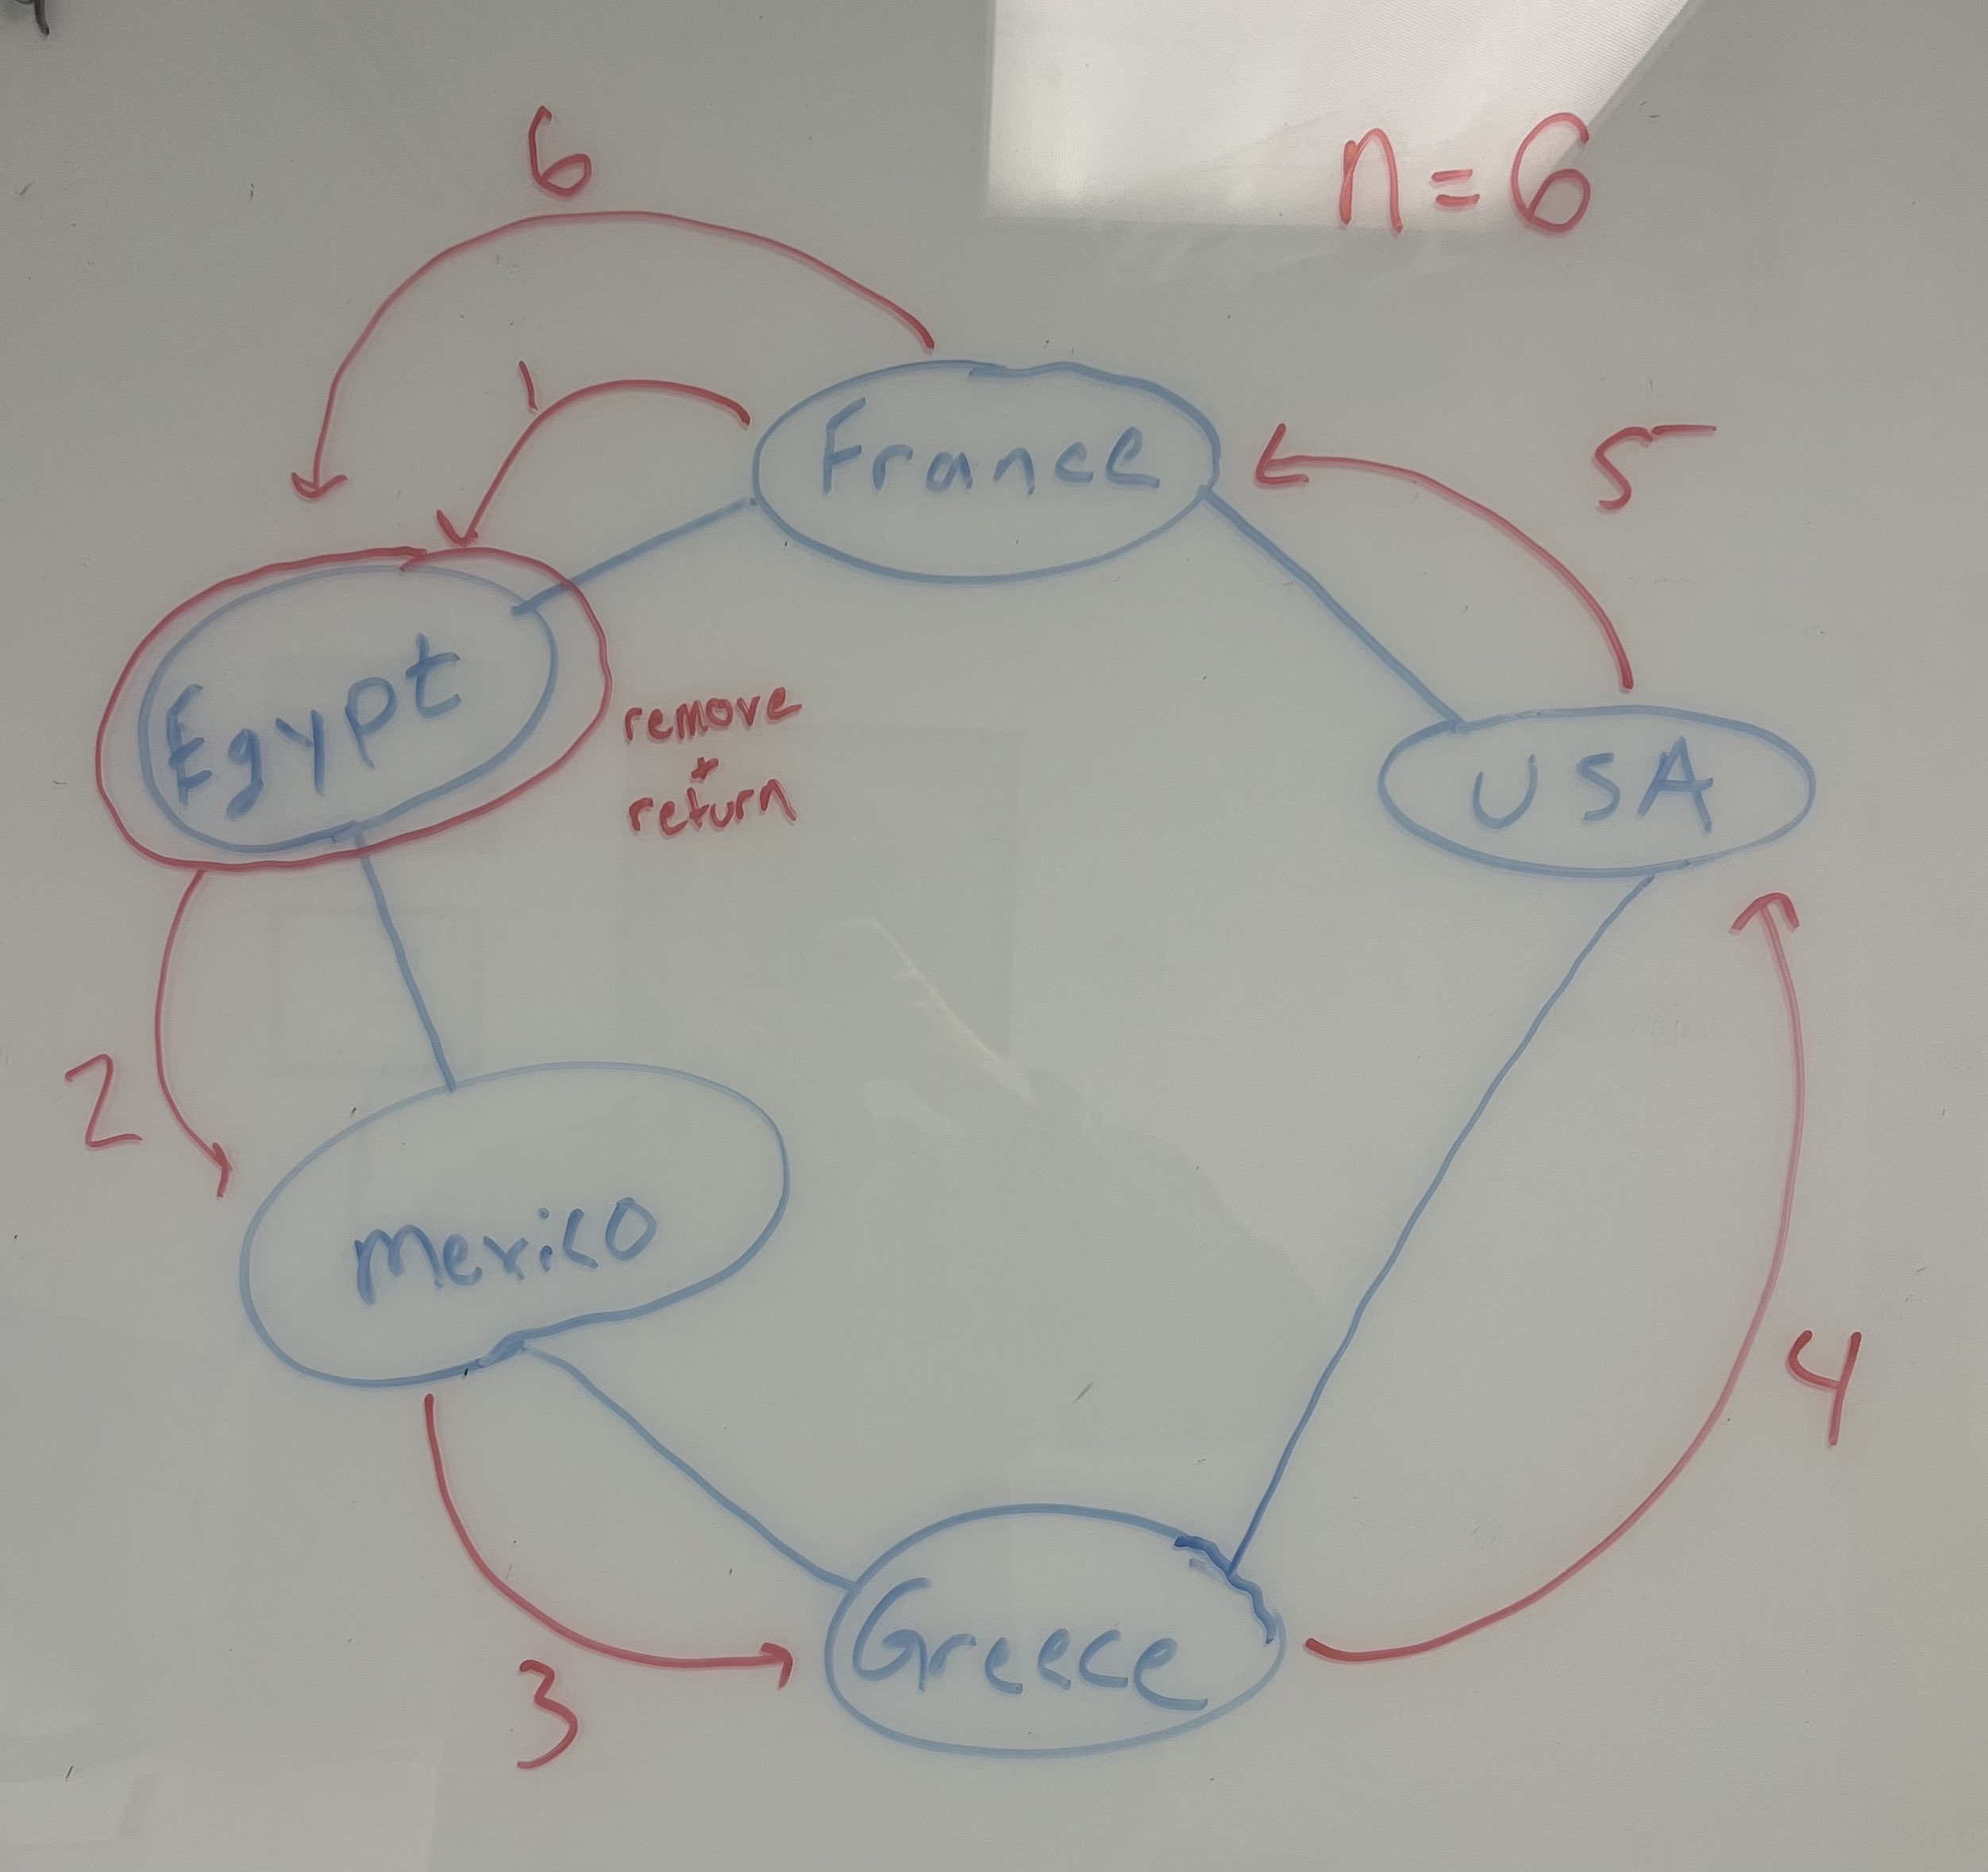 6
n=6
1
France
5
Egypt
remove
+
return
USA
2
Mexico
4
Greece
3